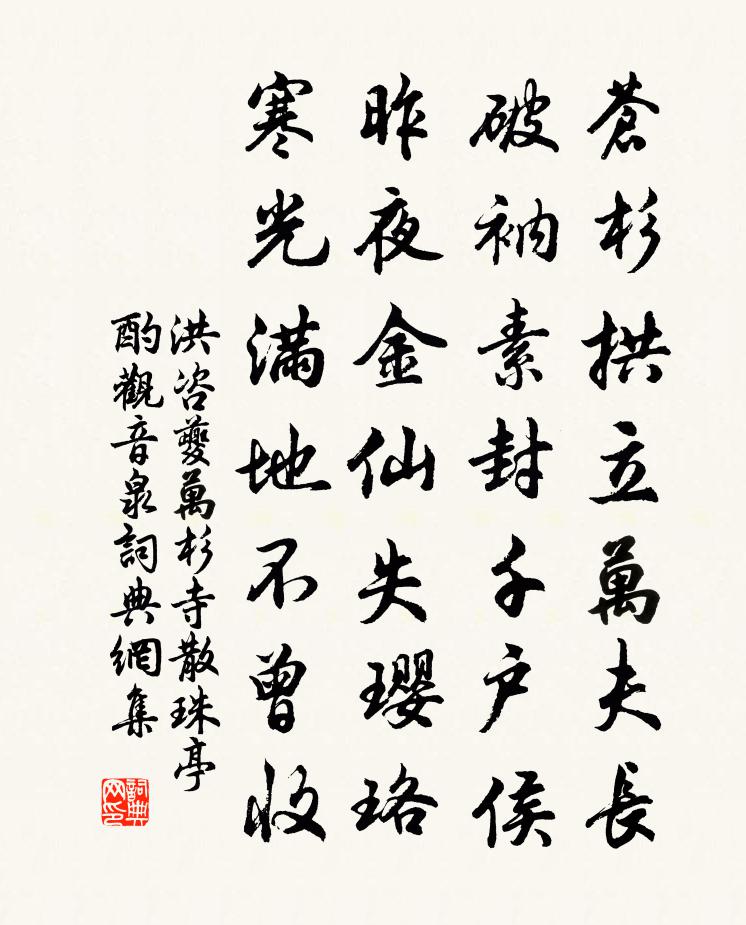 蒼杉拱立萬夫長
破衲素封千戶侯
昨夜金仙失瓔珞
寒光滿地不曾收
洪咨夔萬杉寺散珠亭
酌觀音泉詞典網集
詞典网印